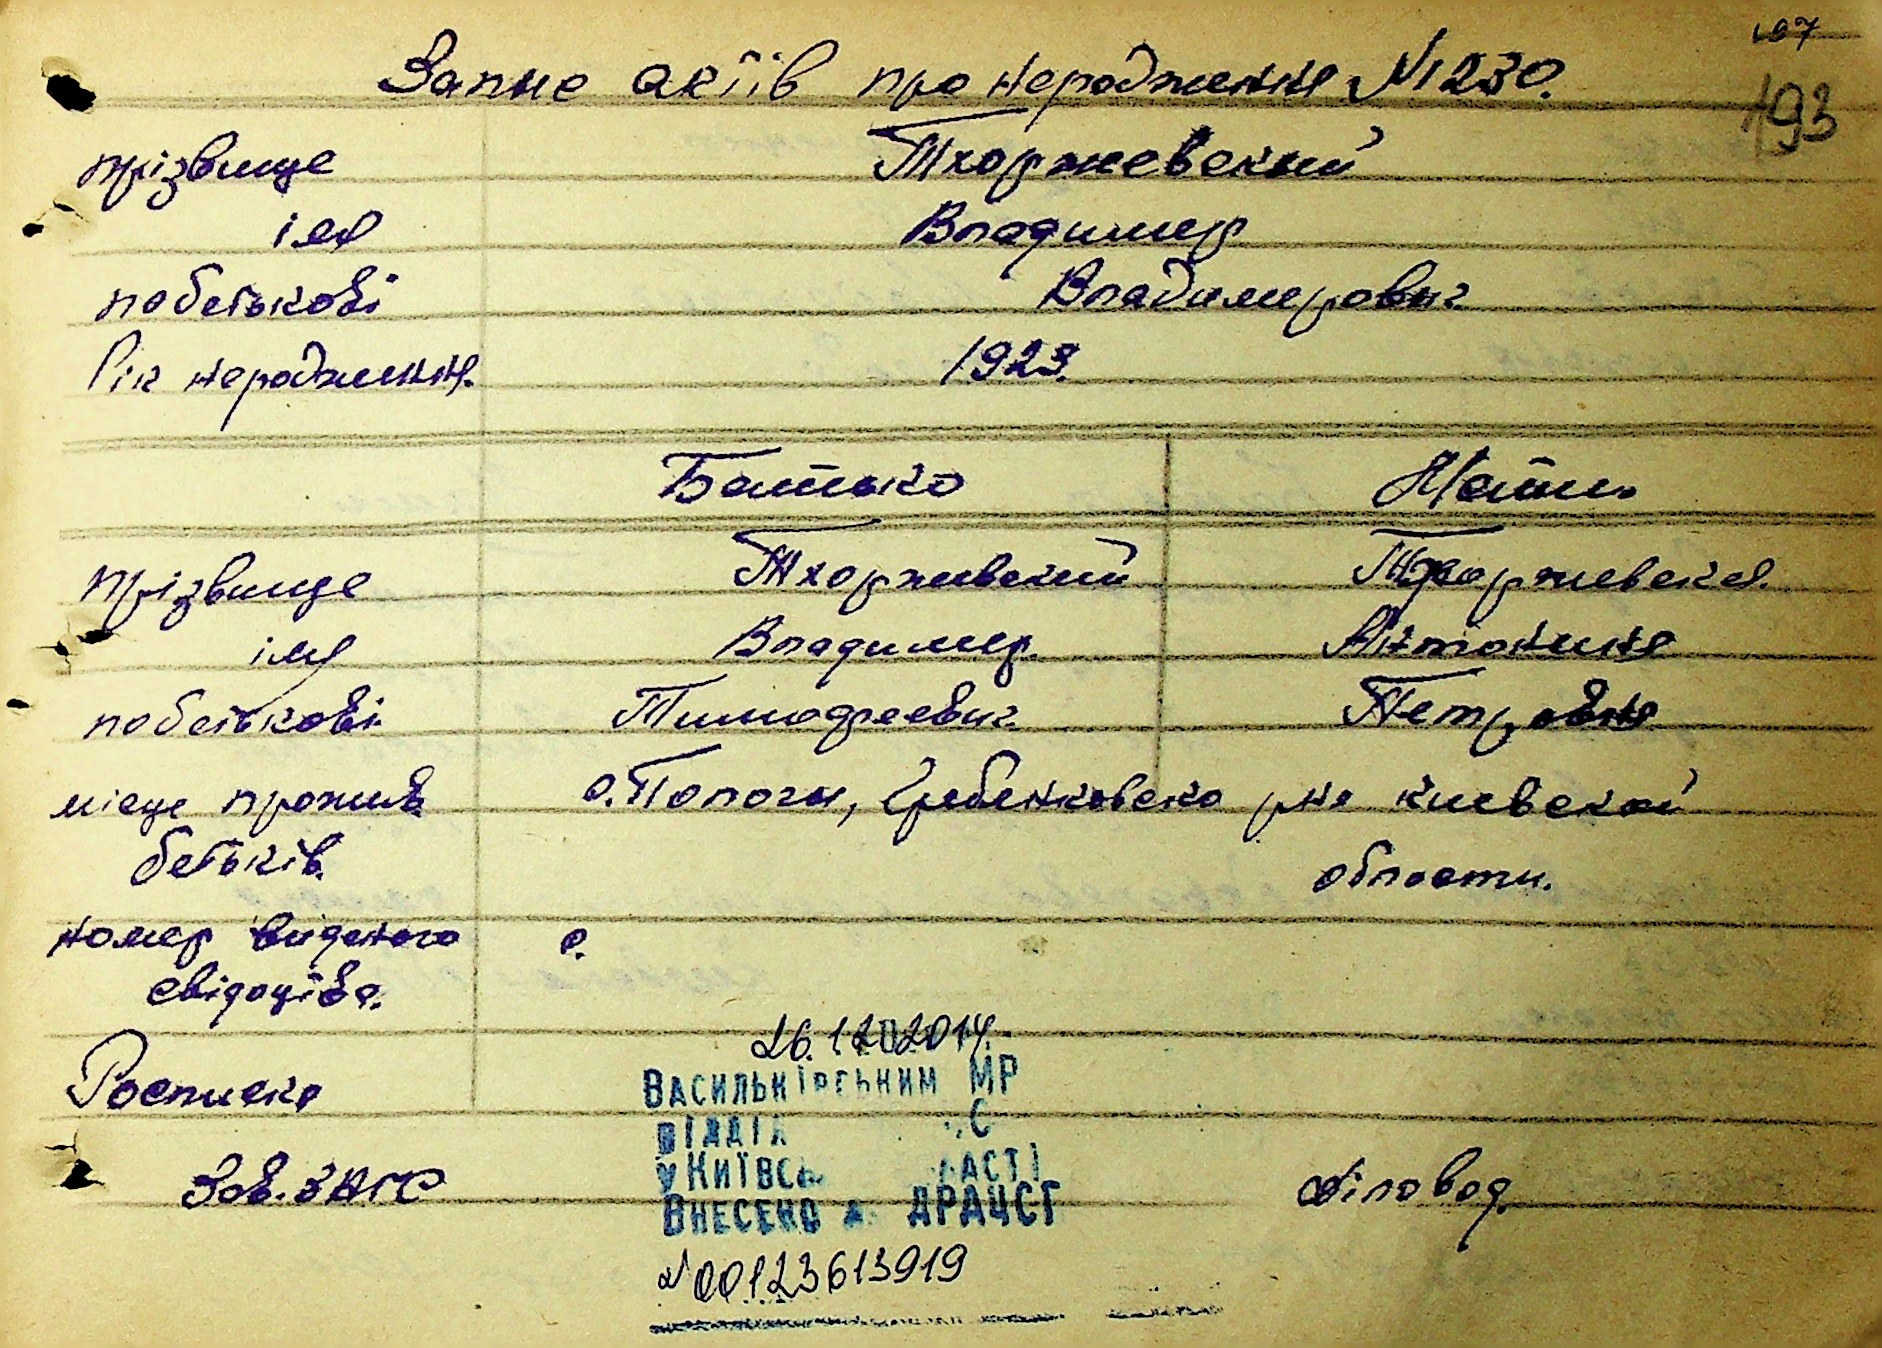 107
193
Запис актів про народження № 1230.
прізвище Тхоржевский
імя Владимир
побатькові Владимирович
Рік народження. 1923.
Батько Мати
прізвище Тхоржевский Тхоржевская.
імя Владимир. Антонина
побатькові Тимофеевич. Петровна
місце прожив. с. Пологы, Гребенковско р-на Киевской
батьків. области.
номер виданого с.
свідоцтва.
26.12.2014.
Васильківським МР
Росписка
відділ С
у Київсь асті
Зав. ЗАГС Діловод.
Внесено д ДРАЦСГ
№00123613919